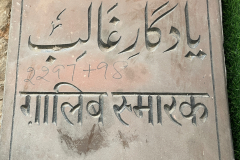 یادگارِ غالبؔ
2297+98
ग़ालिब स्मारक